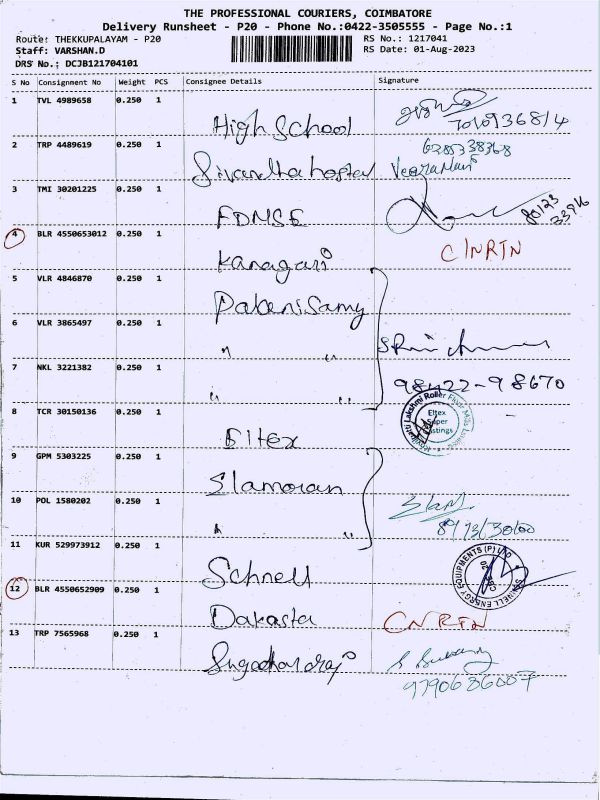 THE PROFESSIONAL COURIERS, COIMBATORE
Delivery Runsheet - P20 - Phone No.:0422-3505555 - Page No.:1
Route: THEKKUPALAYAM - P20
RS No.: 1217041
Staff: VARSHAN.D
RS Date: 01-Aug-2023
DRS No.: DCJB121704101
S No Consignment No Weight PCS Consignee Details Signature
1 TVL 4989658 0.250 1
High School
2 TRP 4489619 0.250 1
6385338368
3 TMI 30201225 0.250 1
FDMSE
80123
33916
4 BLR 4550653012 0.250 1
Kanagari
C/NRTN
5 VLR 4846870 0.250 1
Palanisamy
6 VLR 3865497 0.250 1
" "
7 NKL 3221382 0.250 1
98422-98670
" "
8 TCR 30150136 0.250 1
Eltex
Eltex
Super
Castings
9 GPM 5303225 0.250 1
Slamoran
10 POL 1580202 0.250 1
" "
11 KUR 529973912 0.250 1
Schnell
SCHNELL ENERGY EQUIPMENTS (P) LTD
12 BLR 4550652909 0.250 1
Dakasta
CNRTN
13 TRP 7565968 0.250 1
9790686007